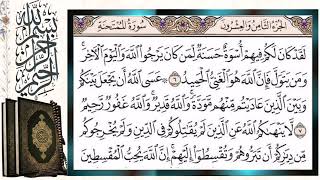 الجزء الثامن والعشرون
سورة الممتحنة
بسم الله الرحمن الرحيم
لَقَدْ كَانَ لَكُمْ فِيهِمْ أُسْوَةٌ حَسَنَةٌ لِّمَن كَانَ يَرْجُوا۟ ٱللَّهَ وَٱلْيَوْمَ ٱلْءَاخِرَ ۚ
وَمَن يَتَوَلَّ فَإِنَّ ٱللَّهَ هُوَ ٱلْغَنِىُّ ٱلْحَمِيدُ ٦ عَسَى ٱللَّهُ أَن يَجْعَلَ بَيْنَكُمْ
وَبَيْنَ ٱلَّذِينَ عَادَيْتُم مِّنْهُم مَّوَدَّةً ۚ وَٱللَّهُ قَدِيرٌ ۚ وَٱللَّهُ غَفُورٌ رَّحِيمٌ
٧ لَّا يَنْهَىٰكُمُ ٱللَّهُ عَنِ ٱلَّذِينَ لَمْ يُقَٰتِلُوكُمْ فِى ٱلدِّينِ وَلَمْ يُخْرِجُوكُم
مِّن دِيَٰرِكُمْ أَن تَبَرُّوهُمْ وَتُقْسِطُوٓا۟ إِلَيْهِمْ ۚ إِنَّ ٱللَّهَ يُحِبُّ ٱلْمُقْسِطِينَ